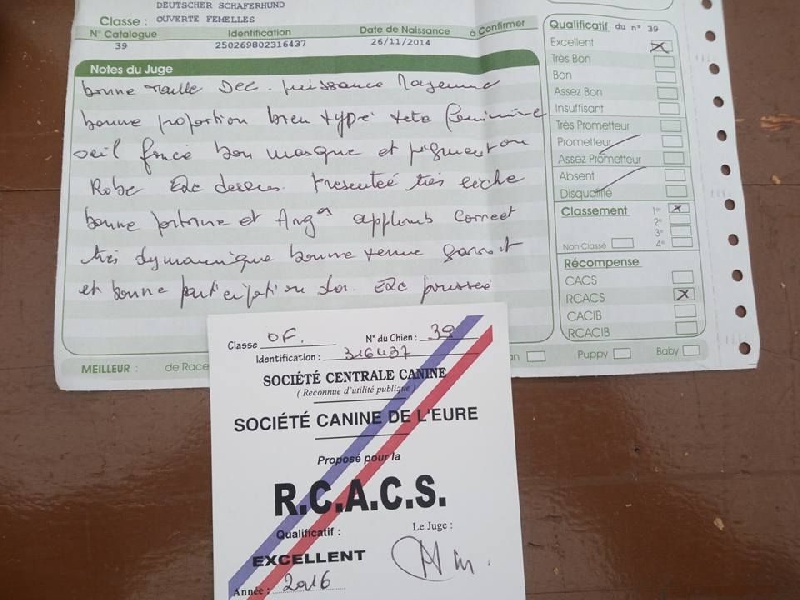 DEUTSCHER SCHAFERHUND
Classe : OUVERTE FEMELLES
N° Catalogue Identification Date de Naissance à Confirmer
39 250269802316437 26/11/2014
Qualificatif du n° 39
Excellent
Très Bon
Bon
Assez Bon
Insuffisant
Très Prometteur
Prometteur
Assez Prometteur
Absent
Disqualifié
Classement 1°
2°
3°
Non Classé 4°
Récompense
CACS
RCACS
CACIB
RCACIB
Notes du Juge
bonne taille puissance moyenne
bonne proportion bien typé tete feminine
oeil foncé bon masque et pigmentation
Robe presenteé très seche
bonne poitrine et Ang° applomb correct
très dynamique bonne tenue garrot
et bonne participation dos
MEILLEUR : de Race Puppy Baby
Classe OF. N° du Chien : 39
Identification : 316437
SOCIÉTÉ CENTRALE CANINE
( Reconnue d'utilité publique )
SOCIÉTÉ CANINE DE L'EURE
Proposé pour la
R.C.A.C.S.
Qualificatif : Le Juge :
EXCELLENT
Année : 2016